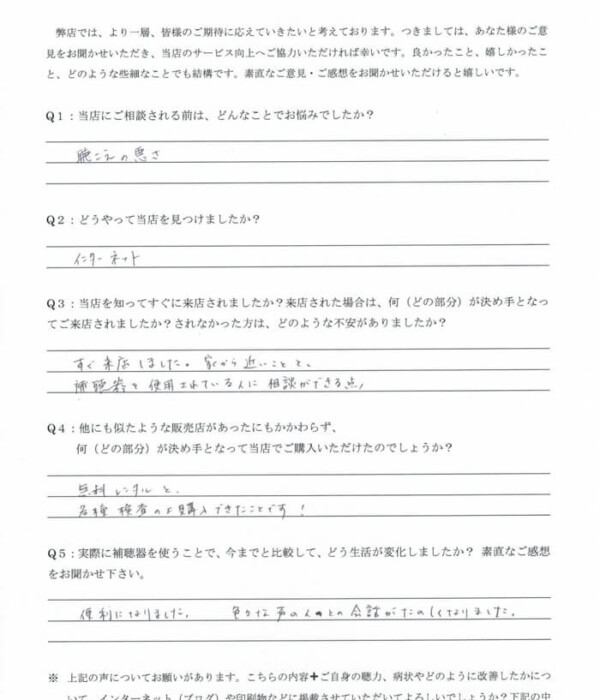 弊店では、より一層、皆様のご期待に応えていきたいと考えております。つきましては、あなた様のご意
見をお聞かせいただき、当店のサービス向上へご協力いただければ幸いです。良かったこと、嬉しかったこ
と、どのような些細なことでも結構です。素直なご意見・ご感想をお聞かせいただけると嬉しいです。
Q1：当店にご相談される前は、どんなことでお悩みでしたか？
聴こえの悪さ
Q2：どうやって当店を見つけましたか？
インターネット
Q3：当店を知ってすぐに来店されましたか？来店された場合は、何（どの部分）が決め手となっ
てご来店されましたか？されなかった方は、どのような不安がありましたか？
すぐ来店しました。家から近いことと、
補聴器を使用されている人に相談ができる点、
Q4：他にも似たような販売店があったにもかかわらず、
何（どの部分）が決め手となって当店でご購入いただけたのでしょうか？
無料レンタルと、
各種検査の上購入できたことです！
Q5：実際に補聴器を使うことで、今までと比較して、どう生活が変化しましたか？ 素直なご感想
をお聞かせ下さい。
便利になりました。 色々な声の人との会話がたのしくなりました。
※ 上記の声についてお願いがあります。こちらの内容＋ご自身の聴力、病状やどのように改善したかにつ
いて、インターネット（ブログ）や印刷物などに掲載させていただいてよろしいでしょうか？下記の中